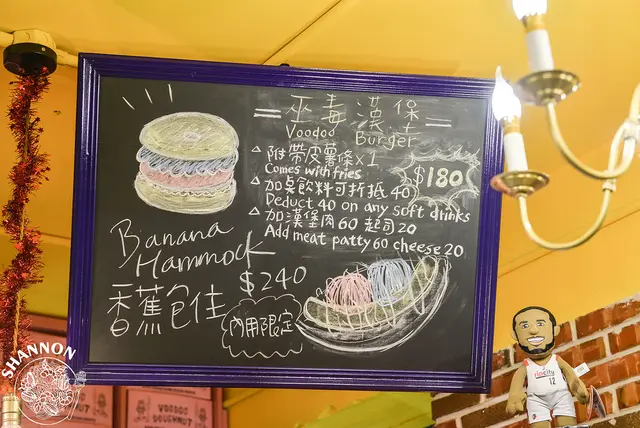 = 巫毒漢堡 =
Voodoo Burger
△ 附帶皮薯條x1
Comes with fries
$180
△ 加桌飲料可折抵40
Deduct 40 on any soft drinks
△ 加漢堡肉60 起司20
Add meat patty 60 cheese 20
Banana
Hammock
$240
香蕉包佳
內用限定
SHANNON
VOODOO
DOUGHNUT
rip city
12